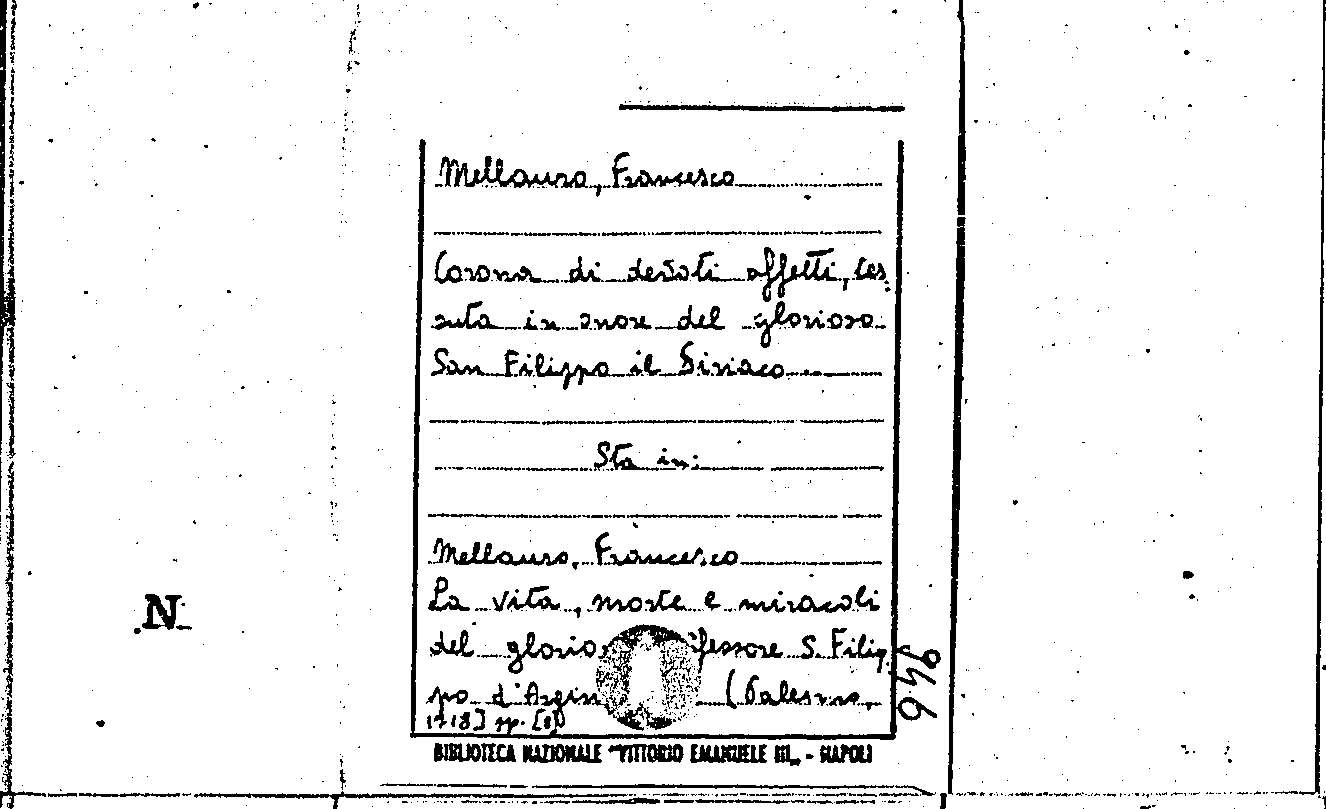 Mellauro, Francesco
Corona di devoti affetti, tes-
suta in onore del glorioso
San Filippo il Siriaco...
Sta in:
Mellauro, Francesco
La vita, morte e miracoli
del glorio fessore S. Filip
po d'Argin (Palermo,
pp. [8]
946
N
BIBLIOTECA NAZIONALE "VITTORIO EMANUELE III„ - NAPOLI